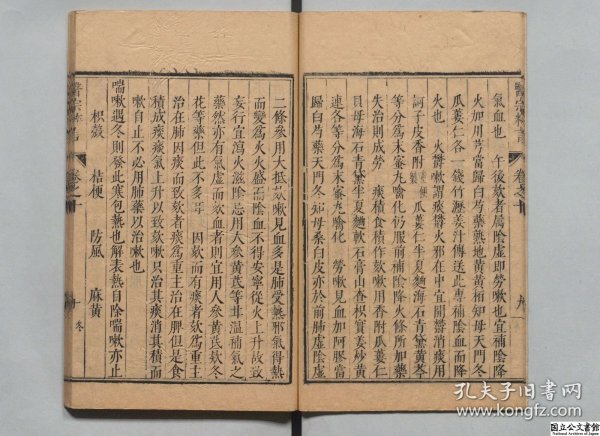 氣血也　午後欬者属陰虛即勞嗽也宜補陰降
火加用芎當歸白芍藥熟地黃黃栢知母天門冬
瓜蔞仁各一錢竹瀝姜汁傳送此專補陰血而降
火也　火欝嗽謂痰欝火邪在中宜開欝消痰用
訶子皮香附瓜蔞仁半夏麯海石青黛黃芩
等分爲末蜜丸噙化仍服前補陰降火條所加藥
失治則成勞　痰積食積作欬嗽用香附瓜蔞仁
貝母海石青黛半夏麯軟石膏山查枳實姜炒黃
連各等分爲末蜜丸噙化　勞嗽見血加阿膠當
歸白芍藥天門冬知母桑白皮亦於前肺虛陰虛
二條參用大抵欬嗽見血多是肺受熱邪氣得熱
而變爲火火盛而陰血不得安寧從火上升故致
妄行宜瀉火滋陰忌用人參黃芪等甘溫補氣之
藥然亦有氣虛而欬血者則宜用人參黃芪欵冬
花等藥但此不多耳　因欬而有痰者欬爲重主
治在肺因痰而致欬者痰爲重主治在脾但是食
積成痰痰氣上升以致欬嗽只治其痰消其積而
嗽自止不必用肺藥以治嗽也
喘嗽遇冬則發此寒包熱也解表熱自除喘嗽亦止
枳殼　桔梗　防風　麻黃
卷之一
孔夫子旧书网
www.kongfz.com
国立公文書館
National Archives of Japan